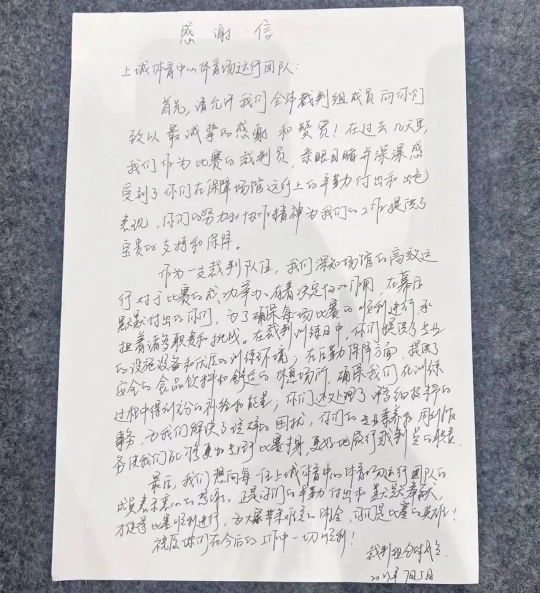 感谢信
上城体育中心体育场运行团队：
首先，请允许我们全体裁判组成员向你们
致以最诚挚的感谢和赞赏！在过去几天里，
我们作为比赛的裁判员，亲眼目睹并深深感
受到了你们在保障场馆运行上的辛勤付出和出色
表现，你们的努力和协作精神为我们的工作提供了
宝贵的支持和保障。
作为一支裁判队伍，我们深知场馆的高效运
行对于比赛的成功举办有着决定性的作用，在幕后
默默付出的你们，为了确保每场比赛的顺利进行，承
担着诸多职责和挑战。在裁判训练日中，你们提供了专业
的设施设备和优质的训练环境；在后勤保障方面，提供了
安全的食品饮料和舒适的休息场所，确保我们在训练
过程中得到充分的补给和能量；你们还处理了
事务，为我们解决了 困扰，你们的专业素养和周到服
务使我们能够更加专注于比赛本身，更好地履行裁判员的职责。
最后，我们想向每一位上城体育中心体育场运行团队的
成员表示衷心的感谢。正是你们的辛勤付出和默默奉献，
才使得比赛顺利进行，为大家带来 的体验，你们是比赛的英雄！
祝愿你们在今后的工作中一切顺利！
裁判组全体成员
7月5日